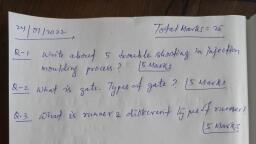 24/01/2022 Total Marks = 25
Q-1 Write about 5 trouble shooting in Injection
moulding process? [5 Marks
Q-2 What is gate. Types of gate? [5 Marks
Q-3 What is runner & different type of runner?
[5 Marks